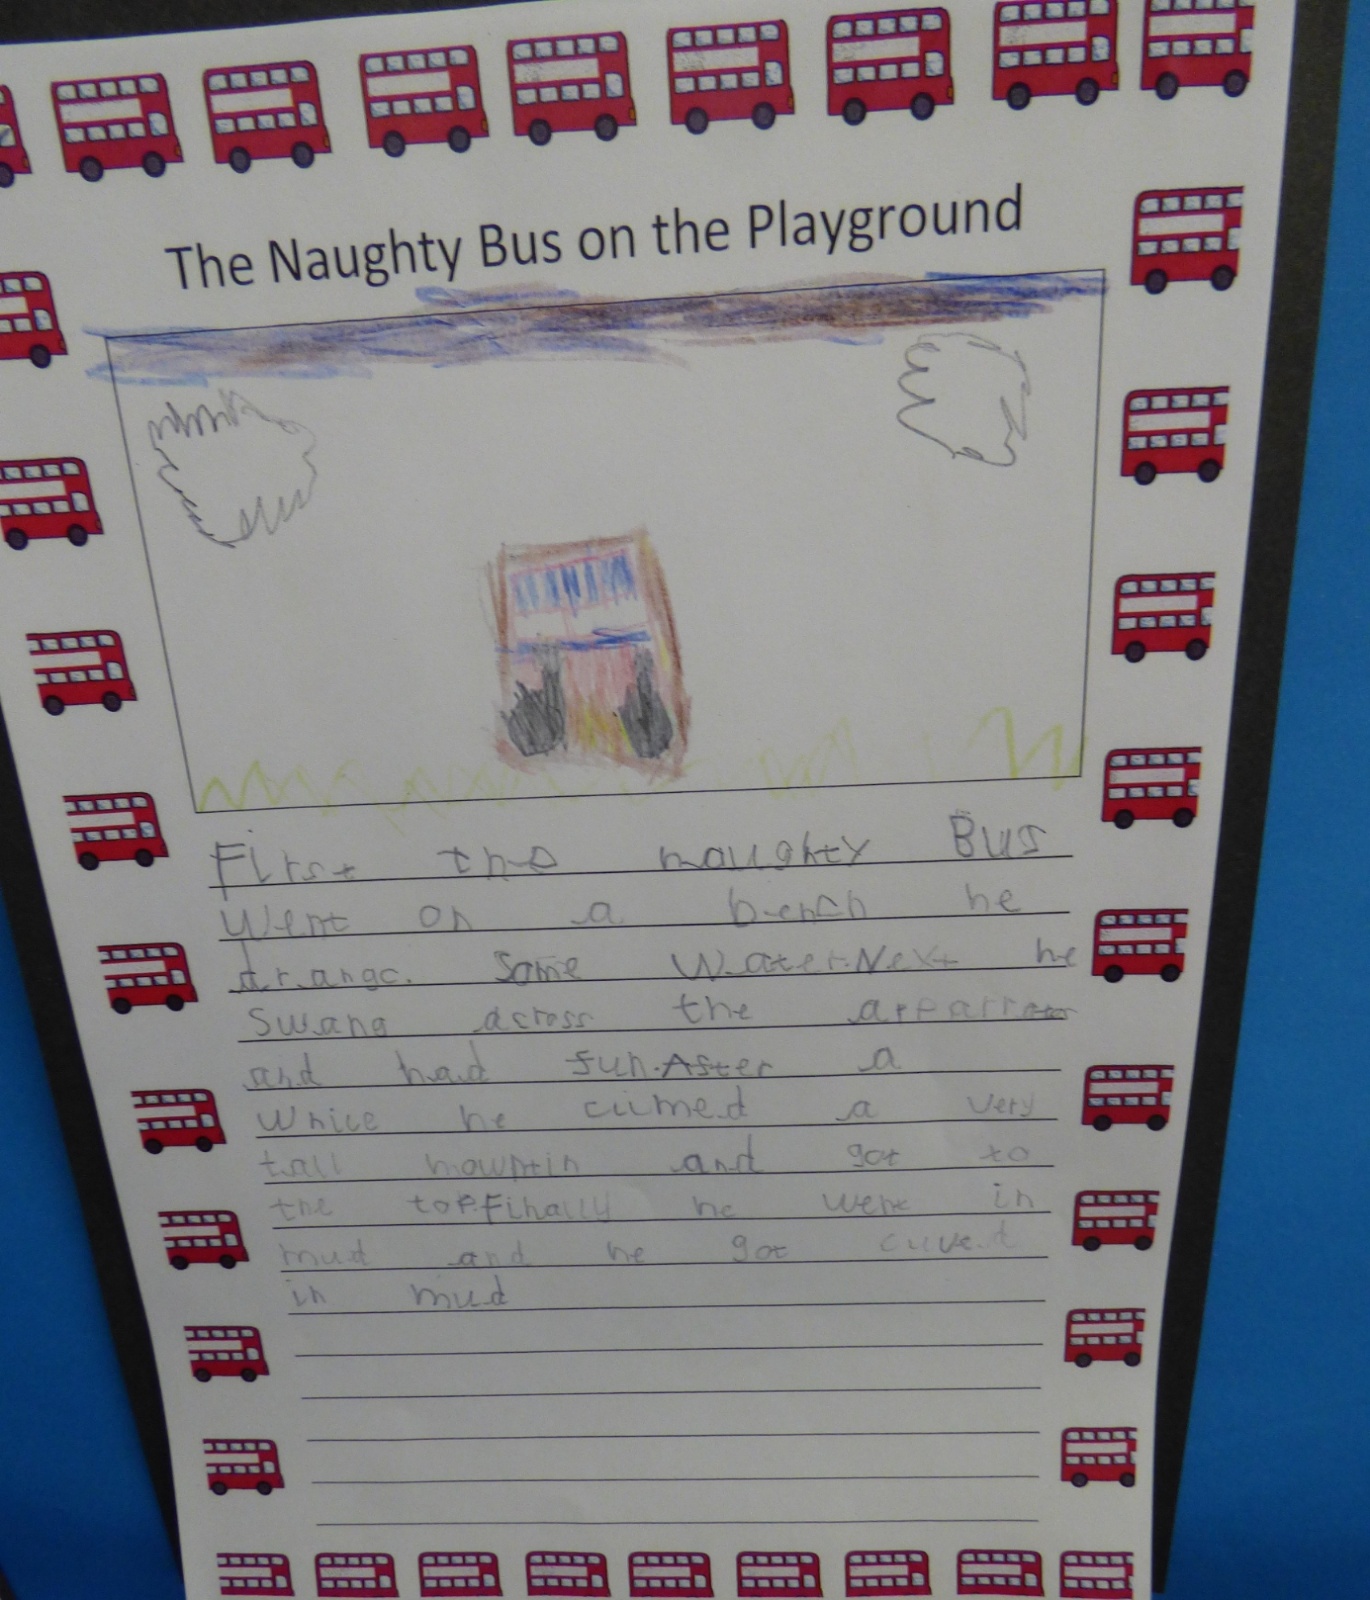 The Naughty Bus on the Playground
First the naughty Bus
Went on a bench he
drangc. Some Water. Next he
Swang across the
and had fun. After a
while he cilmed a very
tall mowntin and got to
the top. Finally he went in
mud and he got cuved
in mud